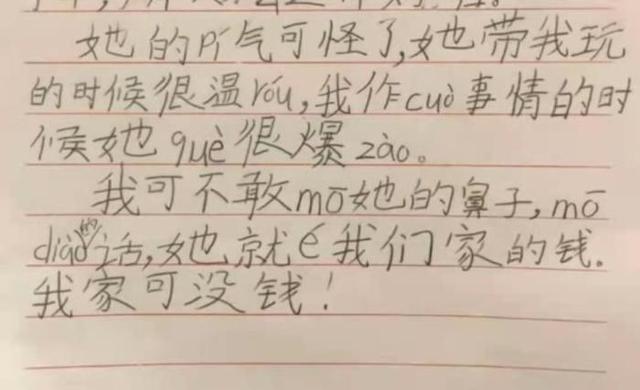 她的pí气可怪了,她带我玩
的时候很温róu,我作cuò事情的时
候她què很爆zào。
我可不敢mō她的鼻子,mō
diào的话,她就é我们家的钱.
我家可没钱!